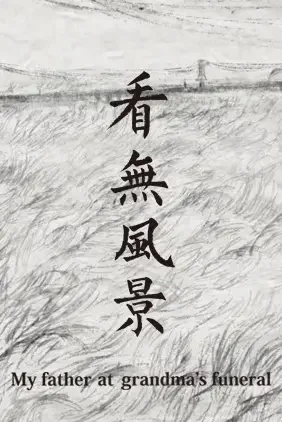 看無風景
My father at grandma's funeral